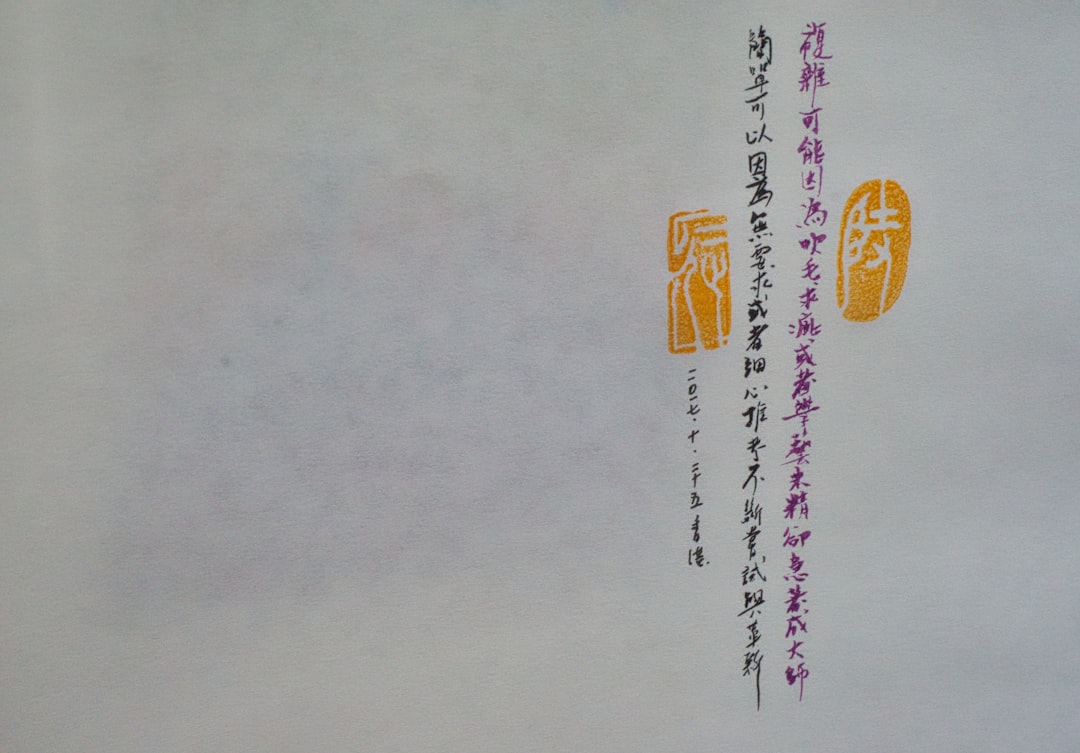 陸
複雜可能因為吹毛求疵或者學藝未精卻急著成大師
簡單可以因為無要求或者細心推考不斷嘗試與革新
二〇一七·十·二十五香港